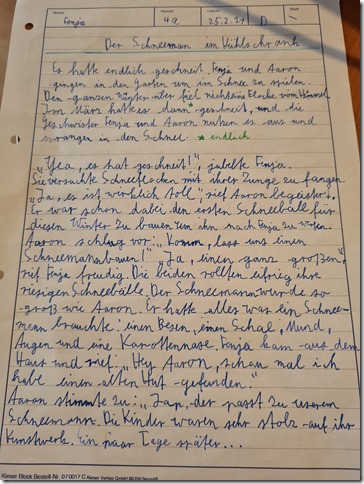 Fenja 4a 25.2.21 D
Der Schneeman im Kühlschrank
Es hatte endlich geschneit. Fenja und Aaron
gingen in den Garten um im Schnee zu spielen.
Den ganzen Winter über fiel nicht eine Flocke vom Himmel
Im März hatte es dann * geschneit, und die
Geschwister Fenja und Aaron nutzen es aus und
sprangen in den Schnee. * endlich
„Yea, es hat geschneit!", jubelte Fenja.
Sie versuchte Schneeflocken mit ihrer Zunge zu fangen.
„Ja, es ist wirklich toll", rief Aaron begeistert.
Er war schon dabei den ersten Schneeball für
diesen Winter zu bauen um ihn nach Fenja zu werfen.
Aaron schlug vor: „Komm, lass uns einen
Schneemann bauen!" „Ja, einen ganz großen"
rief Fenja freudig. Die beiden rollten eifrig ihre
riesigen Schneebälle. Der Schneemann wurde so
groß wie Aaron. Er hatte alles was ein Schnee-
mann brauchte: einen Besen, einen Schal, Mund,
Augen und eine Karottennase. Fenja kam aus dem
Haus und rief: „Hey Aaron, schau mal ich
habe einen alten Hut gefunden."
Aaron stimmte zu: „Jap, der passt zu unserem
Schneemann. Die Kinder waren sehr stolz auf ihr
Kunstwerk. Ein paar Tage später...
Kieser Block Bestell-Nr. 07 0017 C Kieser Verlag GmbH 86356 Neusäß